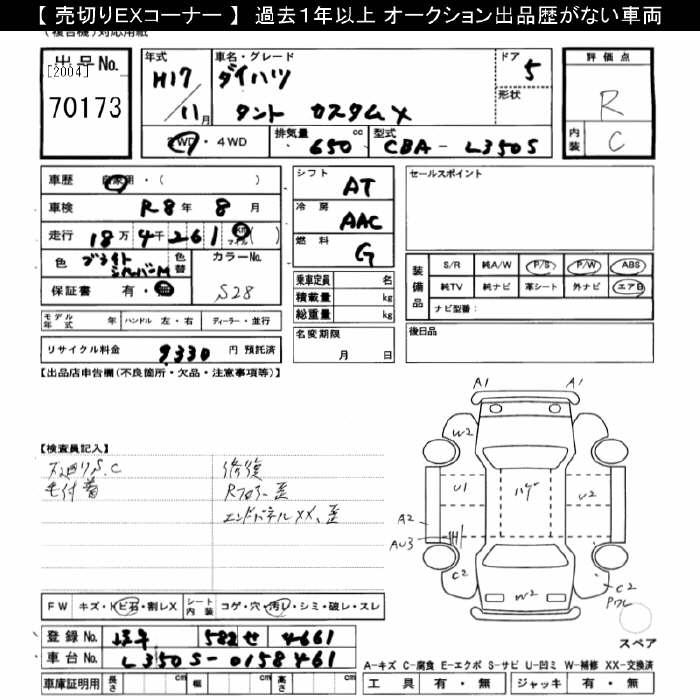 【 売切りEXコーナー 】 過去1年以上 オークション出品歴がない車両
(複合機)対応用紙
出品No.
[2004]
70173
年式
H17
/11月
車名・グレード
ダイハツ
タント カスタムX
ドア
5
形状
2WD・4WD
排気量
650 cc
型式
CBA - L350S
評価点
R
内装
C
車歴 自家用・( )
車検 R8年 8月
走行 18万4千261 km マイル ( )
色
色替
カラーNo.
S28
保証書 有・無
モデル年式 年 ハンドル 左・右 ディーラー・並行
リサイクル料金 9330 円 預託済
シフト AT
冷房 AAC
燃料 G
乗車定員 名
積載量 kg
総重量 kg
名変期限
月 日
セールスポイント
装備品
S/R 純A/W P/S P/W ABS
純TV 純ナビ 革シート 外ナビ エアB
ナビ型番:
後日品
【出品店申告欄(不良箇所・欠品・注意事項等)】
【検査員記入】
下廻りS.C
毛付着
修復
Rフロアー歪
エンドパネルXX、歪
A1 A1
W2
U1
ハゲ
U2
A2
AU3
C2
W2
C2
スペア
FW キズ・トビ石・割レX シート内装 コゲ・穴・汚レ・シミ・破レ・スレ
登録No. 582 せ 4661
車台No. L350S-0158461
車庫証明用 長さ cm 幅 cm 高さ cm
A-キズ C-腐食 E-エクボ S-サビ U-凹ミ W-補修 XX-交換済
工具 有・無 ジャッキ 有・無